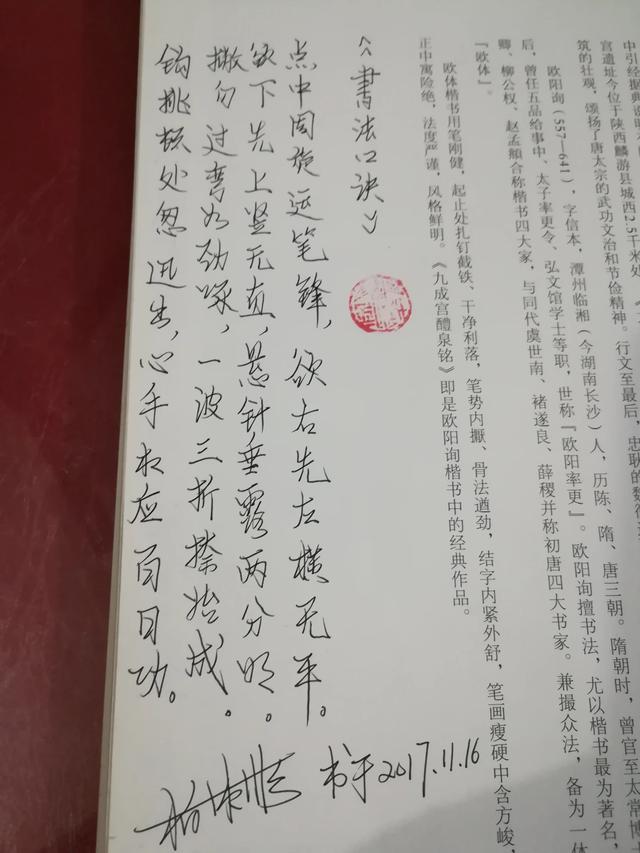 中引经据典说明
宫遗址今位于陕西麟游县城西2.5千米处
筑的壮观，颂扬了唐太宗的武功文治和节俭精神。行文至最后，忠耿的魏
欧阳询（557—641），字信本，潭州临湘（今湖南长沙）人，历陈、隋、唐三朝。隋朝时，曾官至太常博
后，曾任五品给事中、太子率更令、弘文馆学士等职，世称『欧阳率更』。欧阳询擅书法，尤以楷书最为著名，
卿、柳公权、赵孟頫合称楷书四大家，与同代虞世南、褚遂良、薛稷并称初唐四大书家。兼撮众法，备为一体
『欧体』。
欧体楷书用笔刚健，起止处扎钉截铁、干净利落，笔势内擫、骨法遒劲，结字内紧外舒，笔画瘦硬中含方峻，
正中寓险绝，法度严谨，风格鲜明。《九成宫醴泉铭》即是欧阳询楷书中的经典作品。
《書法口诀》
点中周旋运笔锋，欲右先左横无平。
欲下先上竖无直，悬针垂露两分明。
撇勿过弯如劲啄，一波三折捺始成。
钩挑撅处忽迅出，心手相应百日功。
书于2017.11.16